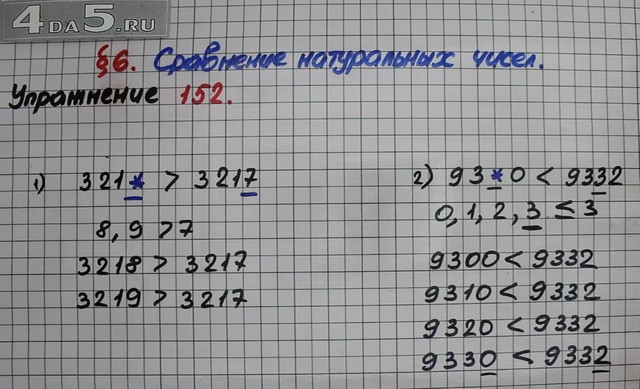 4DA5.RU
§6. Сравнение натуральных чисел.
Упражнение 152.
1) 321* > 3217
8, 9 > 7
3218 > 3217
3219 > 3217
2) 93*0 < 9332
0, 1, 2, 3 ≤ 3
9300 < 9332
9310 < 9332
9320 < 9332
9330 < 9332